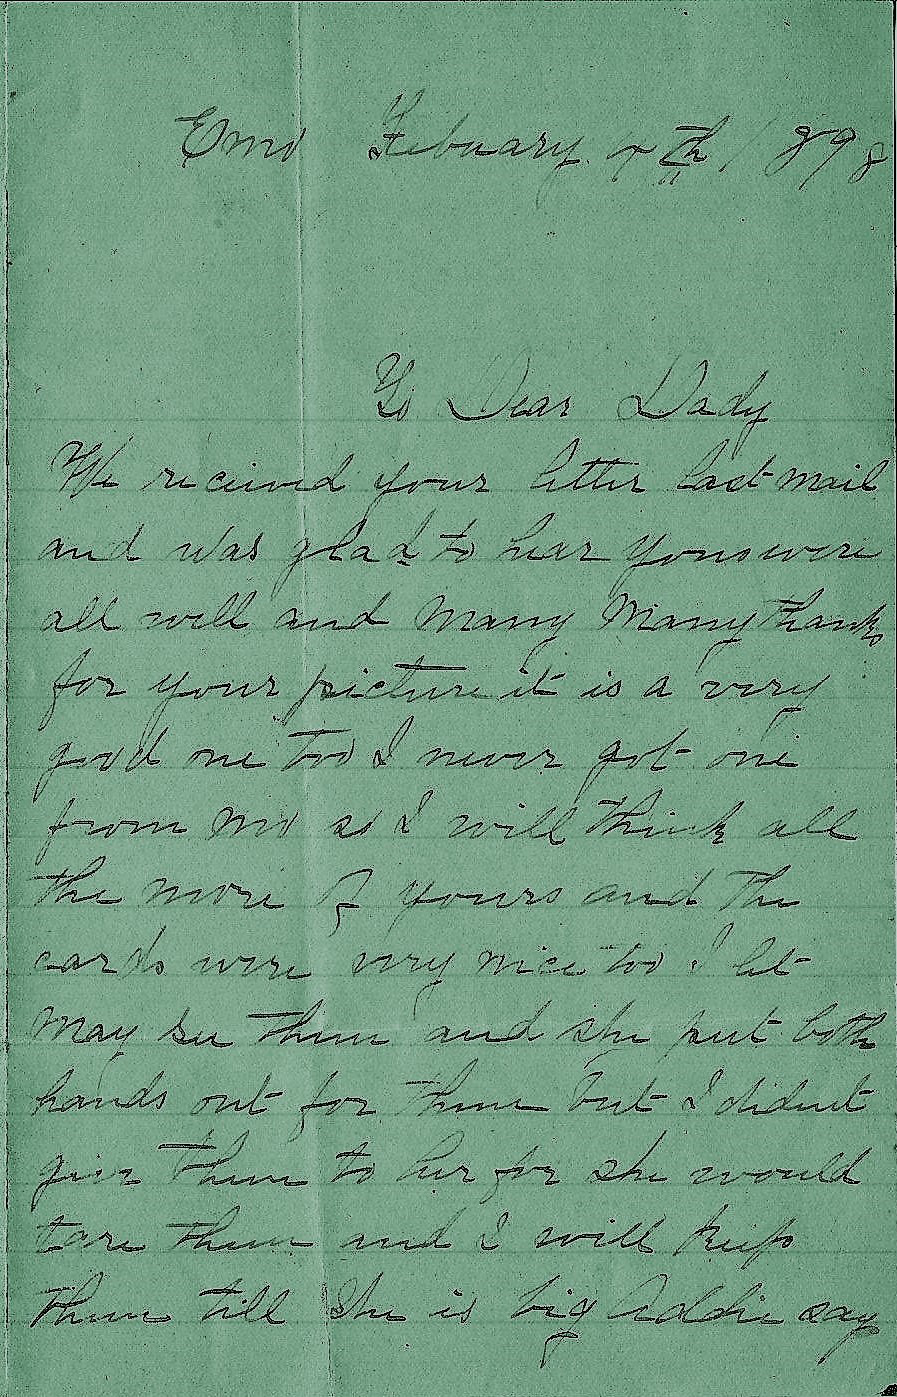 Emo February 4th 1898
To Dear Dady
We received your letter last mail
and was glad to hear yous were
all well and Many Many thanks
for your picture it is a very
good one too I never got one
from Mo so I will think all
the more of yours and the
cards were very nice too I let
May see them and she put both
hands out for them but I didnt
give them to her for she would
tare them and I will keep
them till she is big Addie say